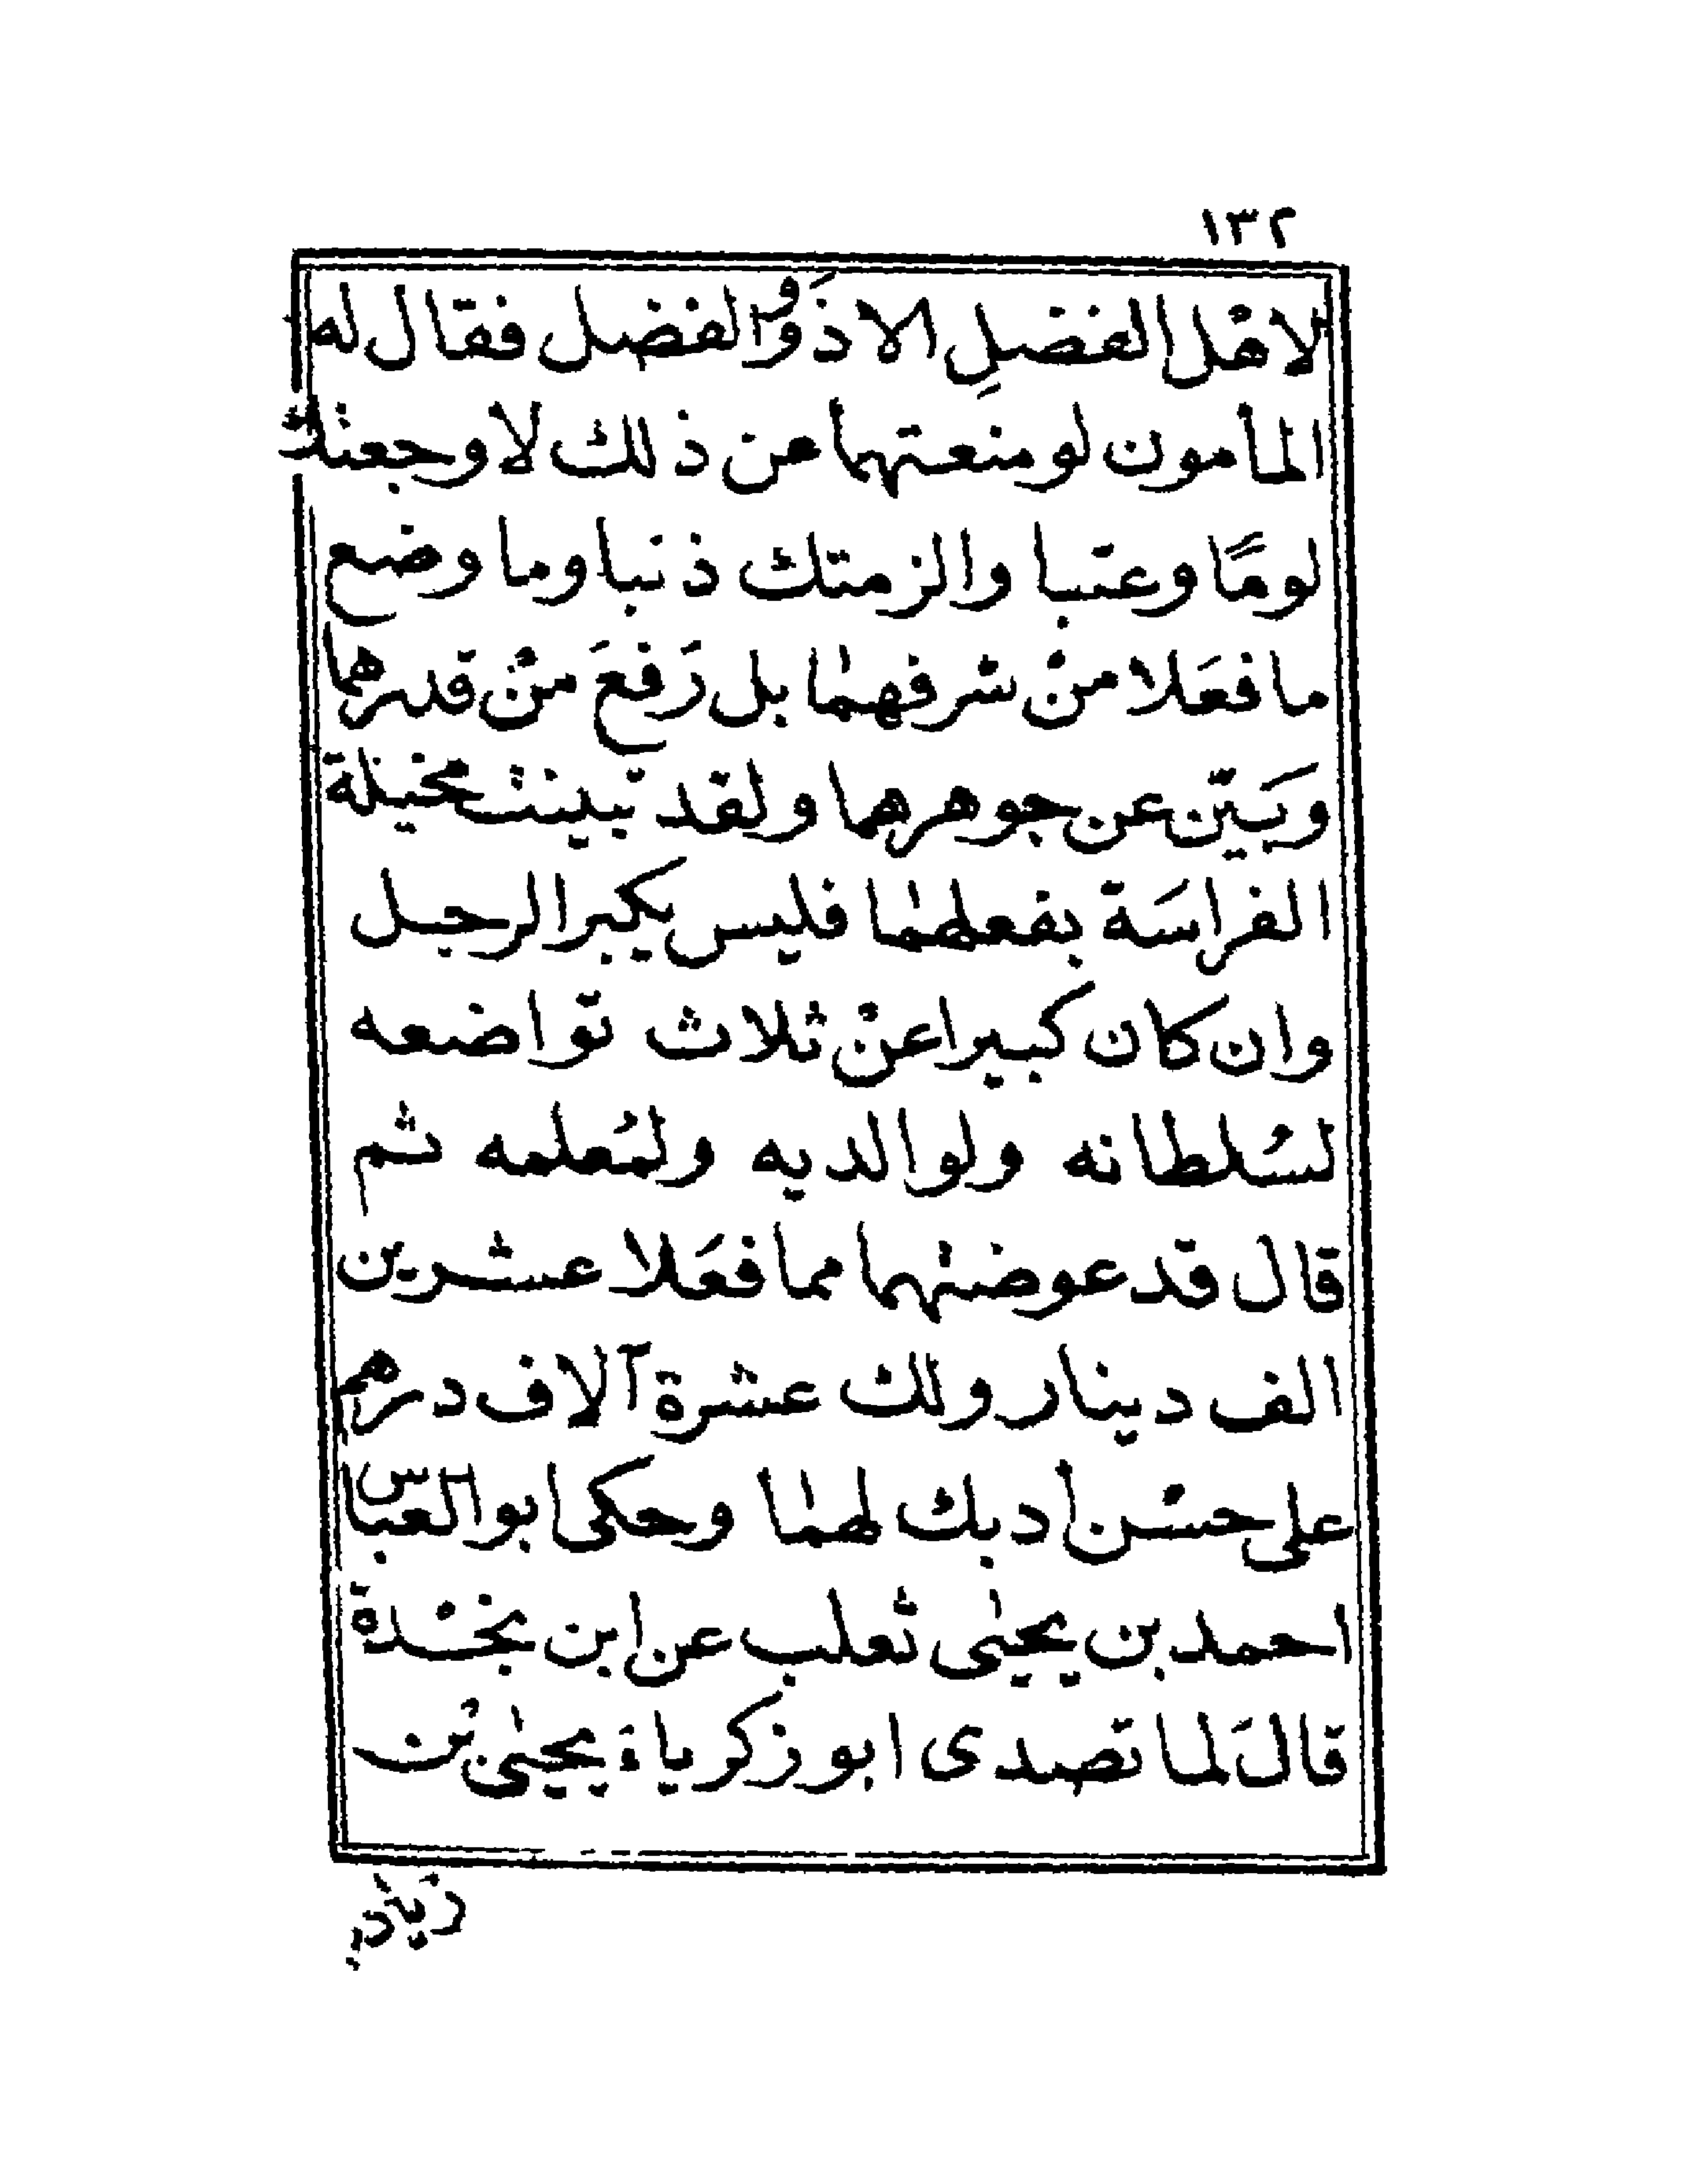 ١٣٢
لاهْل الفضلِ الا ذَوُو الفضل فقال له
المأمون لو منعتهما عن ذلك لاوجعتك
لومًا وعتبا والزمتك ذنبا وما وضع
ما فعَلا منْ شرفهما بل رَفعَ منْ قدرهما
وبَيّن عن جوهرهما ولقد تبينت مخيلة
الفراسَة بفعلهما فليس يكبر الرجل
وان كان كبيرا عنْ ثلاث تواضعه
لسُلطانه ولوالديه ولمُعلمه ثم
قال قد عوضتهما مما فعَلا عشرين
الف دينار ولك عشرة آلاف درهم
على حسْن أدبك لهما وحكى ابو العباس
احمد بن يحيىٰ ثعلب عن ابن نجْدة
قالَ لما تصدى ابو زكرياءَ يحيىٰ بْن
زياد